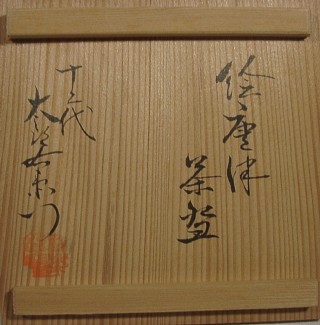 絵唐津
茶盌
十三代
太郎右衛門